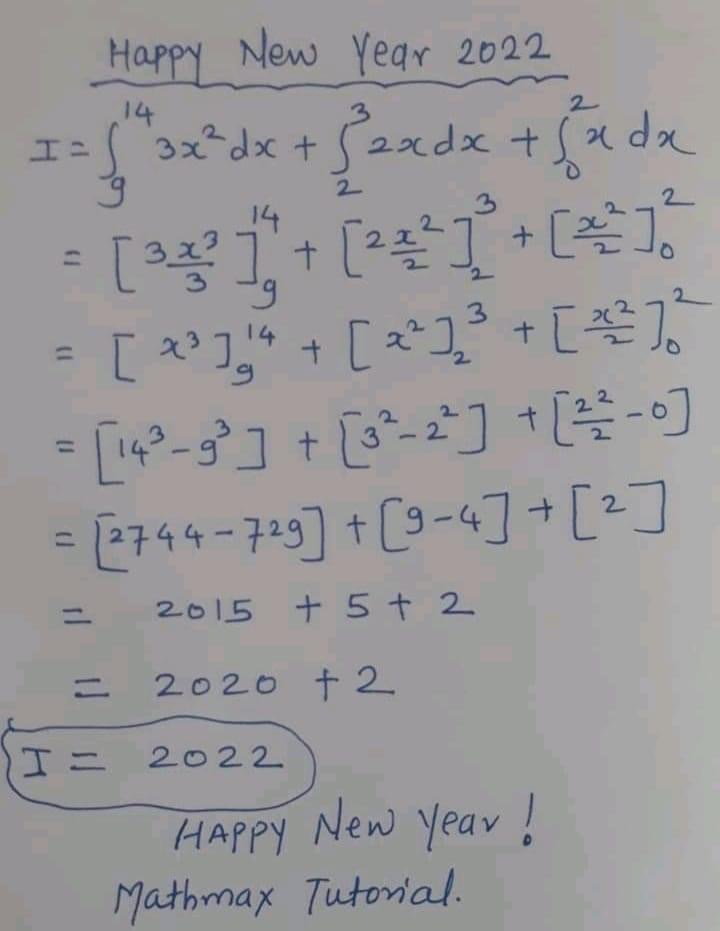 Happy New Year 2022
I = ∫₉¹⁴ 3x² dx + ∫₂³ 2x dx + ∫₀² x dx
= [3 x³/3]₉¹⁴ + [2 x²/2]₂³ + [x²/2]₀²
= [x³]₉¹⁴ + [x²]₂³ + [x²/2]₀²
= [14³ - 9³] + [3² - 2²] + [2²/2 - 0]
= [2744 - 729] + [9 - 4] + [2]
= 2015 + 5 + 2
= 2020 + 2
I = 2022
HAPPY New Year !
Mathmax Tutorial.